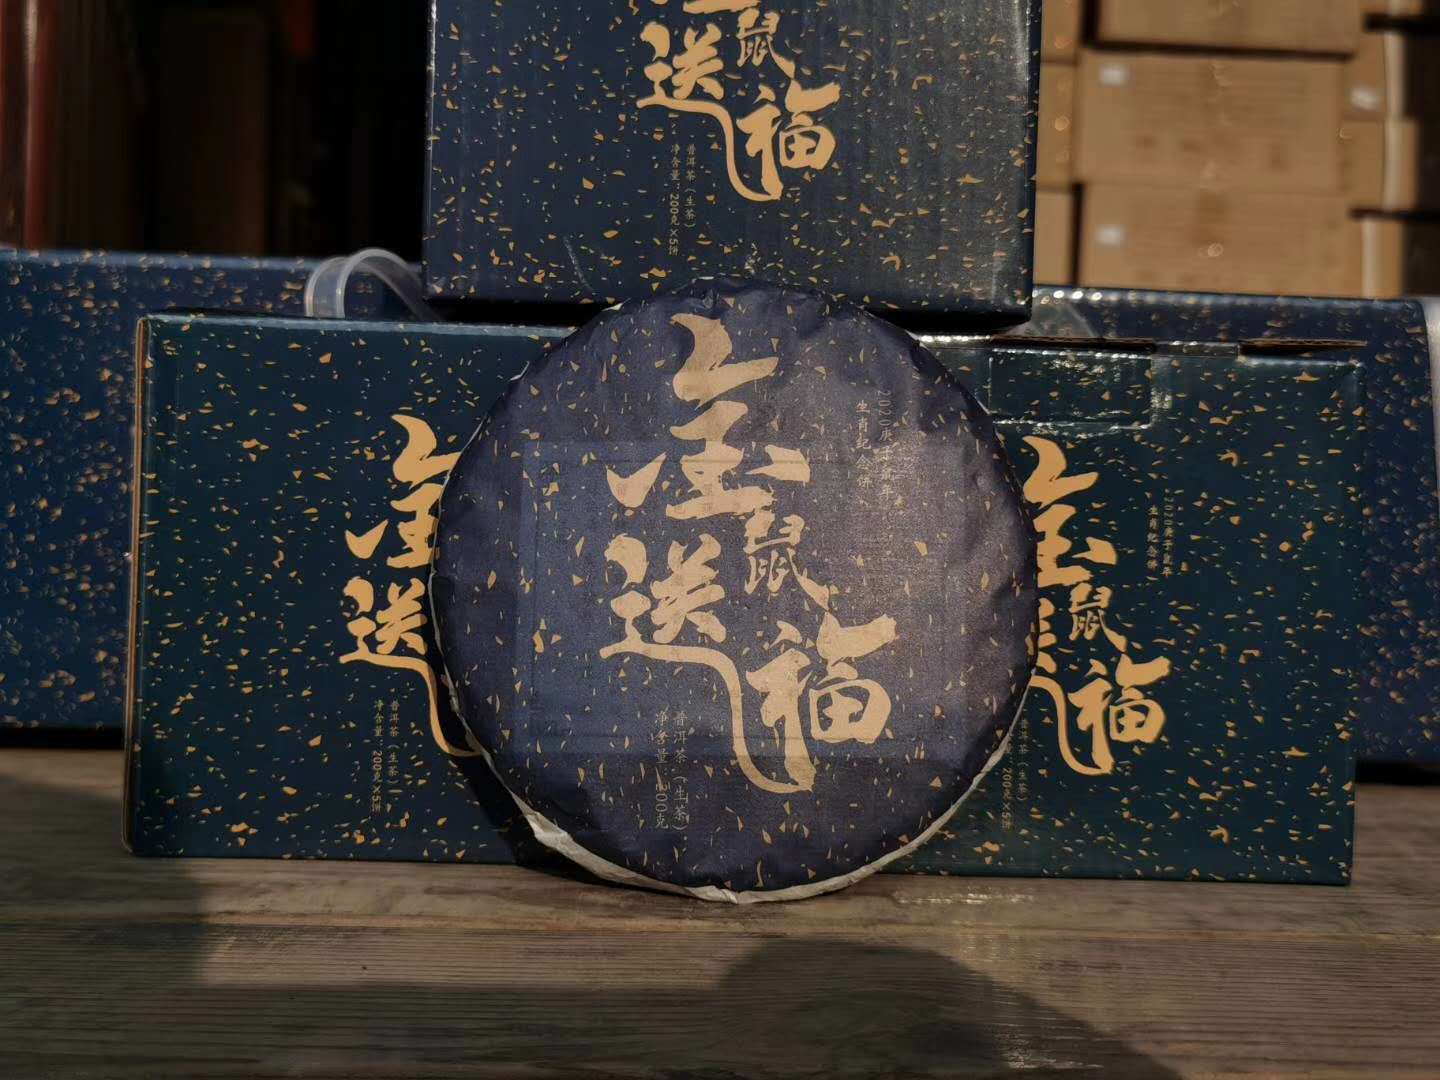 鼠
送福
普洱茶（生茶）
净含量：200g×5饼
金鼠
送福
2020庚子鼠年
生肖纪念饼
普洱茶（生茶）
净含量：200克
金
送
普洱茶（生茶）
净含量：200g×5饼
金
鼠
福
2020庚子鼠年
生肖纪念饼
普洱茶（生茶）
200g×5饼